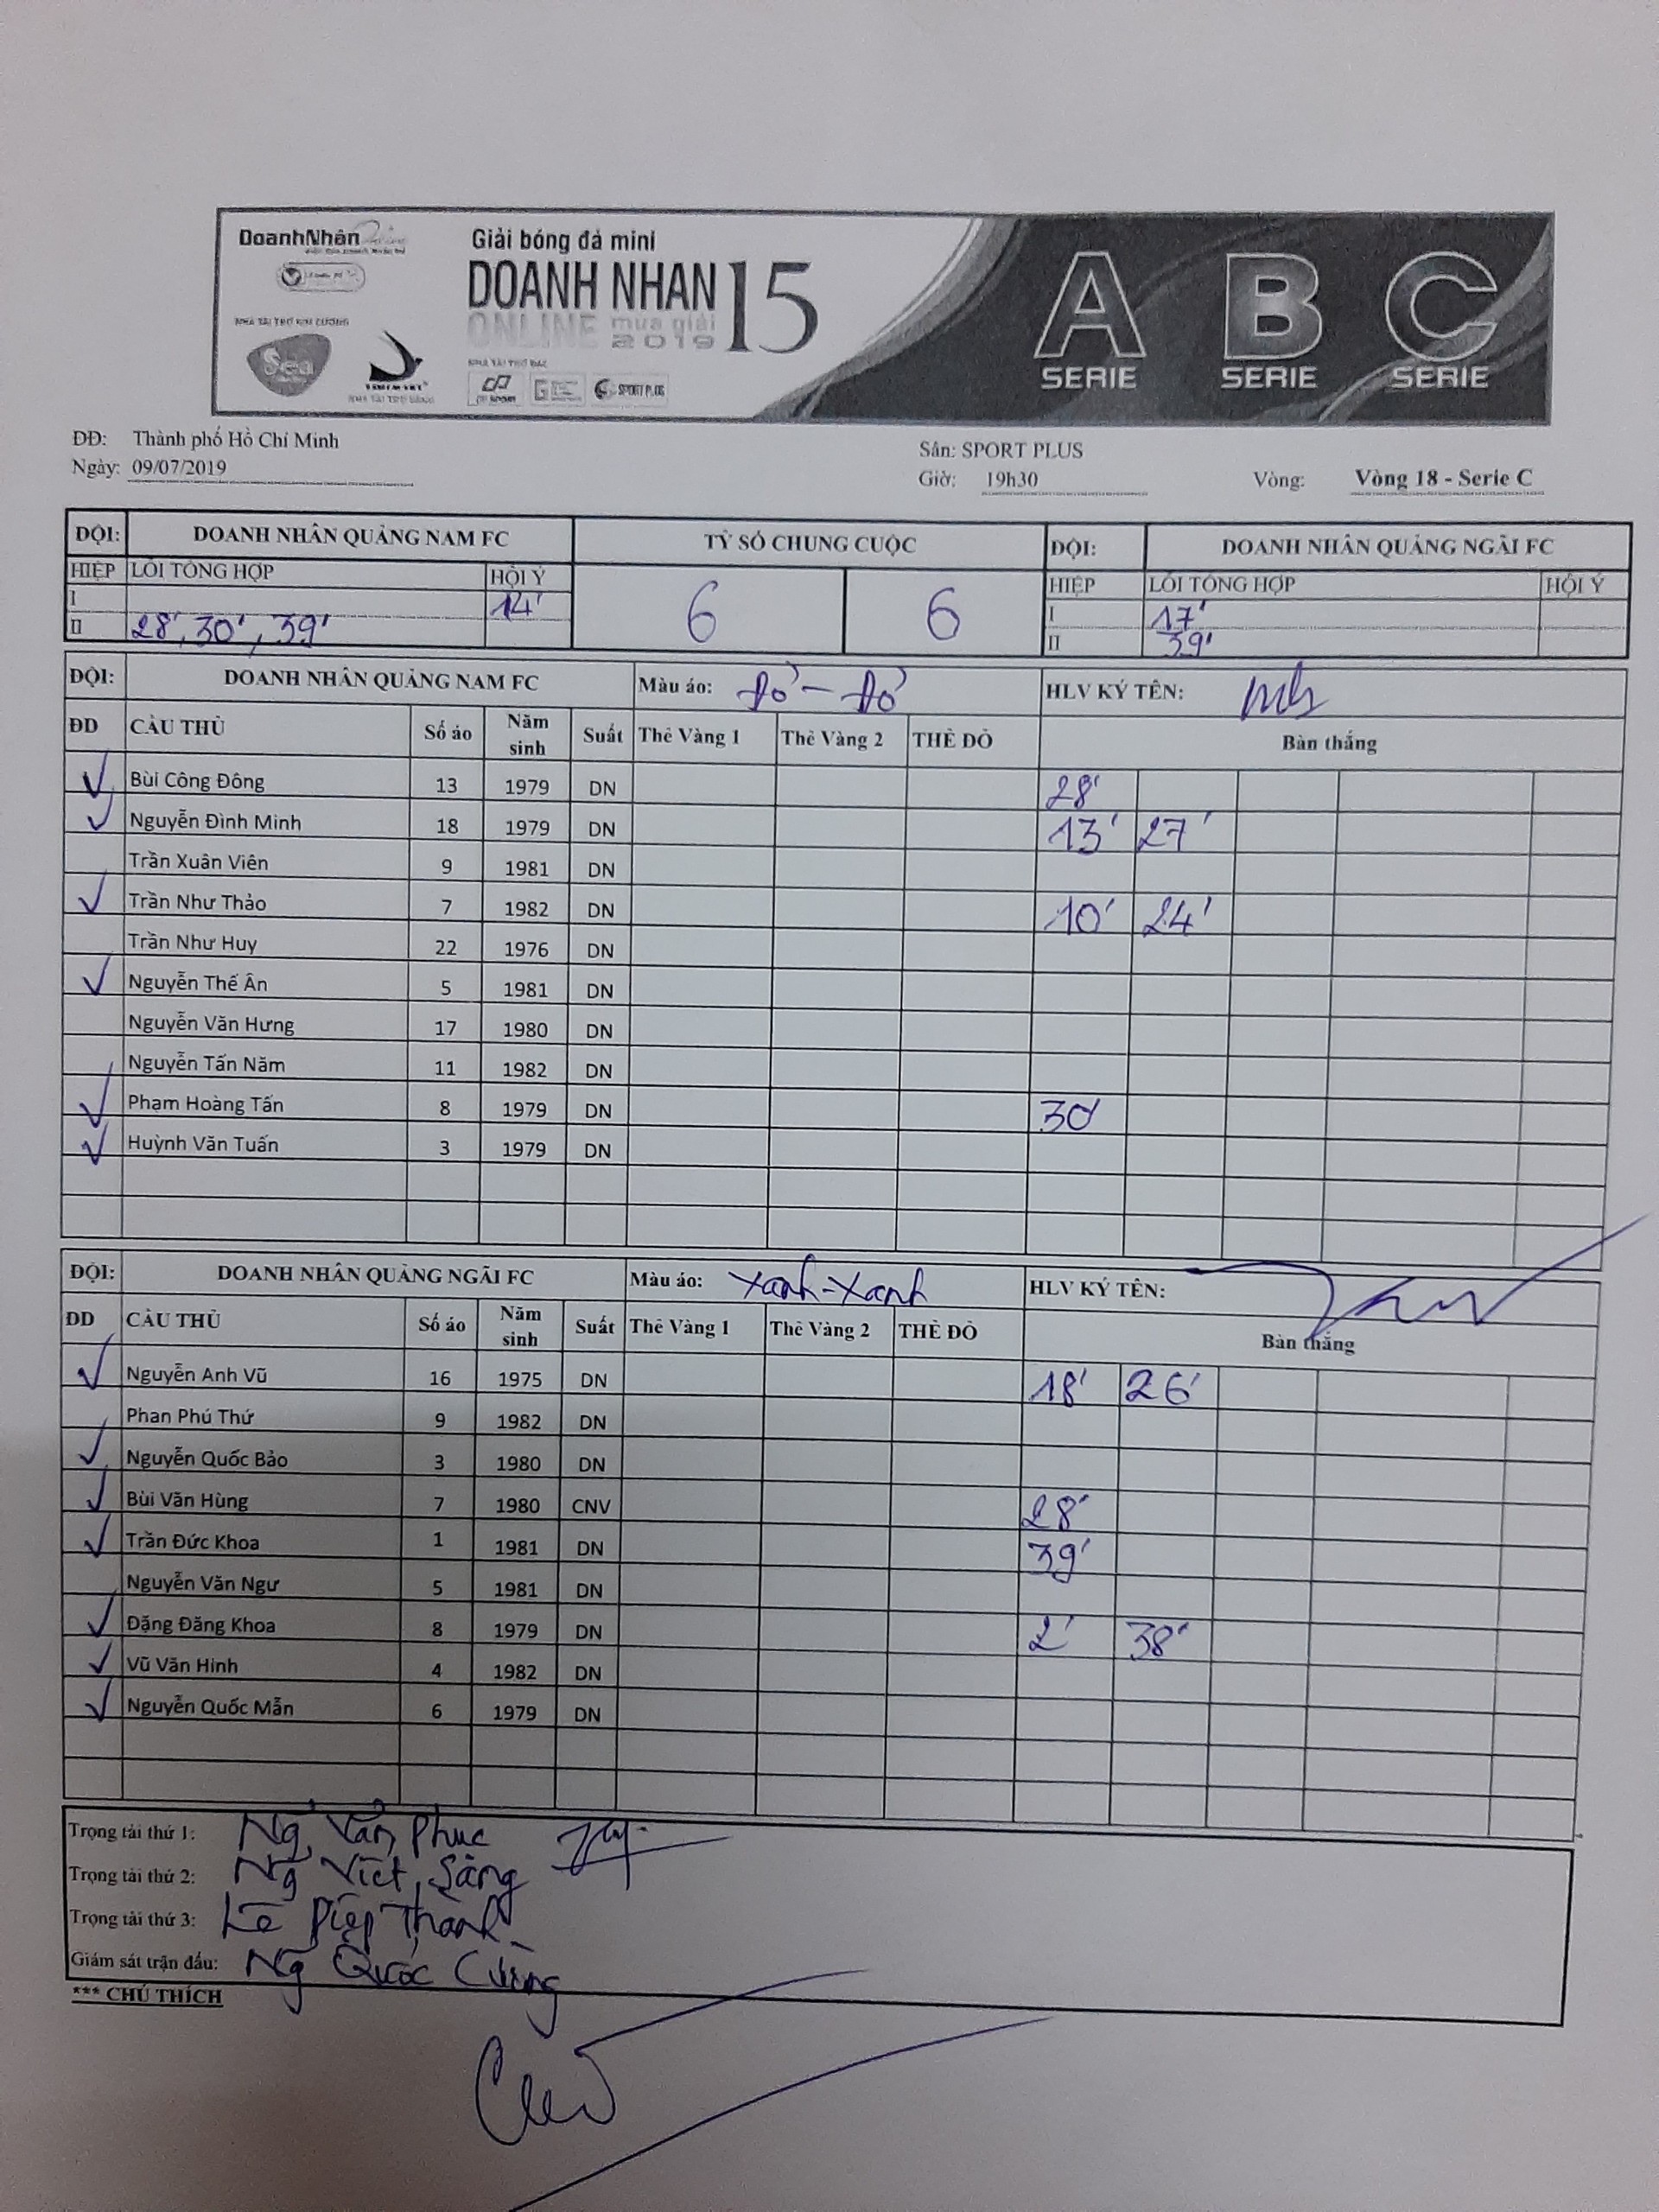 DoanhNhân
Giải bóng đá mini
DOANH NHAN 15
ONLINE mua giải 2019
NHÀ TÀI TRỢ KIM CƯƠNG
Sea
NHÀ TÀI TRỢ VÀNG
SPORT PLUS
A SERIE B SERIE C SERIE
ĐĐ: Thành phố Hồ Chí Minh Sân: SPORT PLUS
Ngày: 09/07/2019 Giờ: 19h30 Vòng: Vòng 18 - Serie C
ĐỘI: DOANH NHÂN QUẢNG NAM FC TỶ SỐ CHUNG CUỘC ĐỘI: DOANH NHÂN QUẢNG NGÃI FC
HIỆP LỖI TỔNG HỢP HỘI Ý 6 6 HIỆP LỖI TỔNG HỢP HỘI Ý
I 14' I 17'
II 28', 30', 39' II 39'
ĐỘI: DOANH NHÂN QUẢNG NAM FC Màu áo: Đỏ - Đỏ HLV KÝ TÊN:
ĐD CẦU THỦ Số áo Năm sinh Suất Thẻ Vàng 1 Thẻ Vàng 2 THẺ ĐỎ Bàn thắng
✓ Bùi Công Đông 13 1979 DN 28'
✓ Nguyễn Đình Minh 18 1979 DN 13' 27'
Trần Xuân Viên 9 1981 DN
✓ Trần Như Thảo 7 1982 DN 10' 24'
Trần Như Huy 22 1976 DN
✓ Nguyễn Thế Ân 5 1981 DN
Nguyễn Văn Hưng 17 1980 DN
Nguyễn Tấn Năm 11 1982 DN
✓ Phạm Hoàng Tấn 8 1979 DN 30'
✓ Huỳnh Văn Tuấn 3 1979 DN
ĐỘI: DOANH NHÂN QUẢNG NGÃI FC Màu áo: Xanh-Xanh HLV KÝ TÊN:
ĐD CẦU THỦ Số áo Năm sinh Suất Thẻ Vàng 1 Thẻ Vàng 2 THẺ ĐỎ Bàn thắng
✓ Nguyễn Anh Vũ 16 1975 DN 18' 26'
Phan Phú Thứ 9 1982 DN
✓ Nguyễn Quốc Bảo 3 1980 DN
✓ Bùi Văn Hùng 7 1980 CNV 28'
✓ Trần Đức Khoa 1 1981 DN 39'
Nguyễn Văn Ngư 5 1981 DN
✓ Đặng Đăng Khoa 8 1979 DN 2' 38'
✓ Vũ Văn Hinh 4 1982 DN
✓ Nguyễn Quốc Mẫn 6 1979 DN
Trọng tài thứ 1: Ng Văn Phuc
Trọng tài thứ 2: Ng Viết Sáng
Trọng tài thứ 3: Lê Diệp Thanh
Giám sát trận đấu: Ng Quốc Cường
*** CHÚ THÍCH